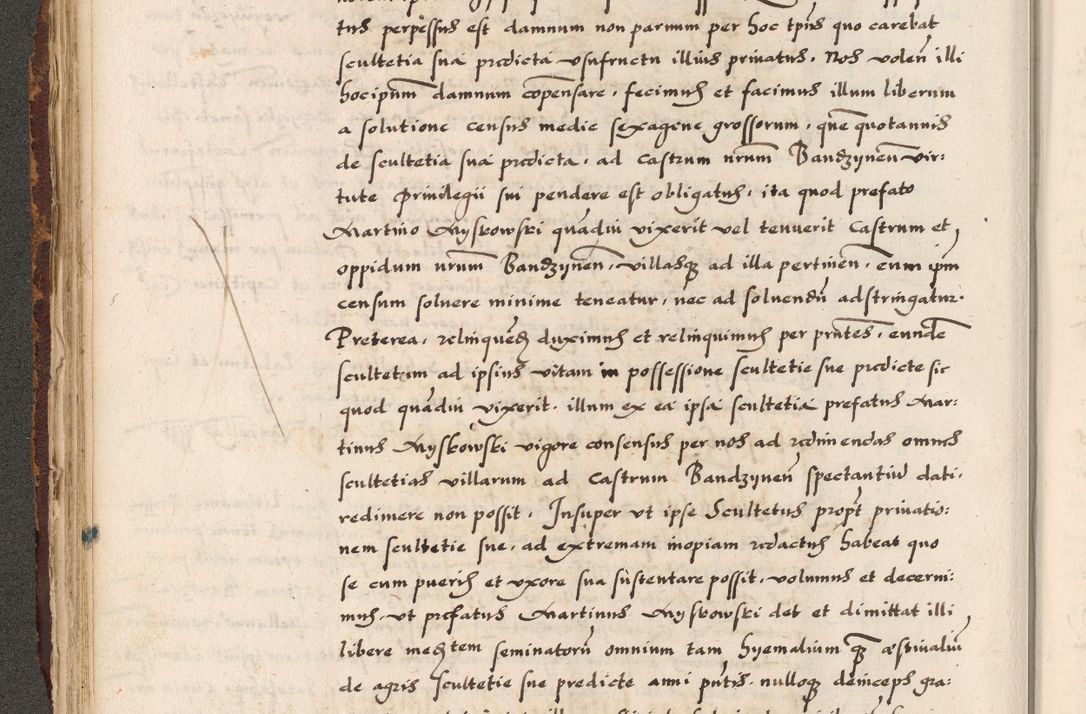 tus perpessus est damnum non parnum per hoc tpus quo carebat
scultetia sua predicta vsufructu illius priuatus. Nos volen illi
hocipsum damnum copensare, fecimus et facimus illum liberum
a solutione census medie sexagene grossorum, que quotannis
de scultetia sua predicta, ad Castrum nrum Bandzynen vir:
tute Priuilegii sui pendere est obligatus, ita quod prefato
Martino Myskowski quadiu vixerit vel tenuerit Castrum et
oppidum nrum Bandzynen, villasq ad illa pertinen, eum ipm
censum soluere minime teneatur, nec ad soluendu adstringatur.
Preterea, relinquedu duximus et relinquimus per pntes, eunde
scultetum ad ipsius vitam in possessione scultetie sue predicte sic
quod quadiu vixerit, illum ex ea ipsa scultetia prefatus Mar:
tinus Myskowski vigore consensus per nos ad redimendas omnes
scultetias villarum ad Castrum Bandzynen spectantiu dati,
redimere non possit. Insuper vt ipse Scultetus propt priuatio:
nem scultetie sue, ad extremam inopiam redactus habeat quo
se cum pueris et vxore sua sustentare possit, volumus et decerni:
mus, vt prefatus Martinus Myskowski det et dimittat illi
libere messem seminatoru omnium tam hyemalium q æstiualiu
de agris scultetie sue predicte anni pntis, nulloq deinceps gra: